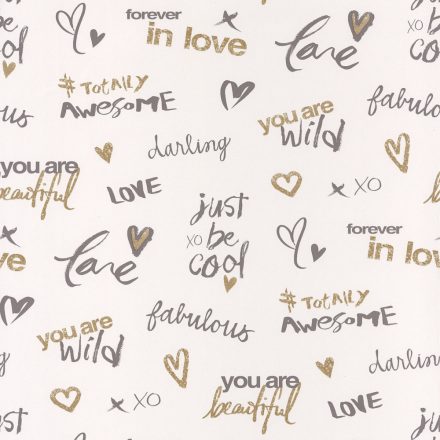 forever
in love
love
just
xo be
cool
#TotAlly
AWESOME
you are
wild
fabulous
fabulous
darling
you are
beautiful
LOVE
x XO
just
xo be
cool
forever
in love
in love
love
#TotAlly
AWESOME
fabulous
you are
wild
darling
you are
beautiful
x XO
LOVE
just
be